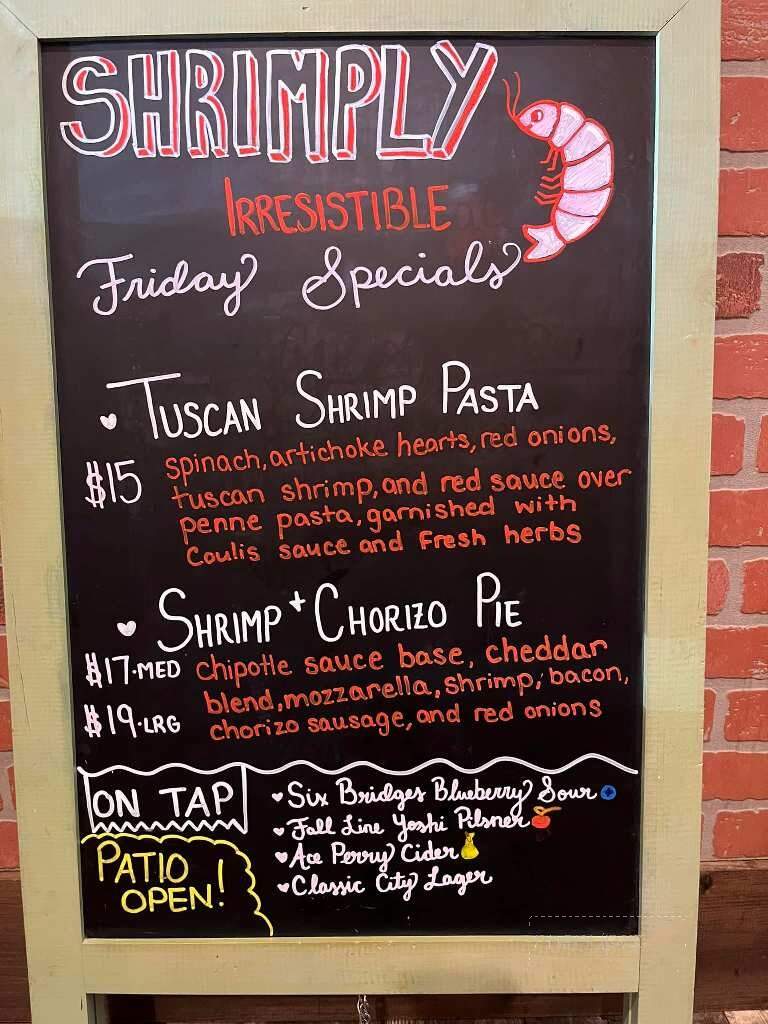 SHRIMPLY
IRRESISTIBLE
Friday Specials
TUSCAN SHRIMP PASTA
$15 spinach, artichoke hearts, red onions,
tuscan shrimp, and red sauce over
penne pasta, garnished with
Coulis sauce and Fresh herbs
SHRIMP + CHORIZO PIE
$17·MED chipotle sauce base, cheddar
blend, mozzarella, shrimp, bacon,
$19·LRG chorizo sausage, and red onions
ON TAP
Six Bridges Blueberry Sour
Fall Line Yoshi Pilsner
Ace Perry Cider
Classic City Lager
PATIO
OPEN!